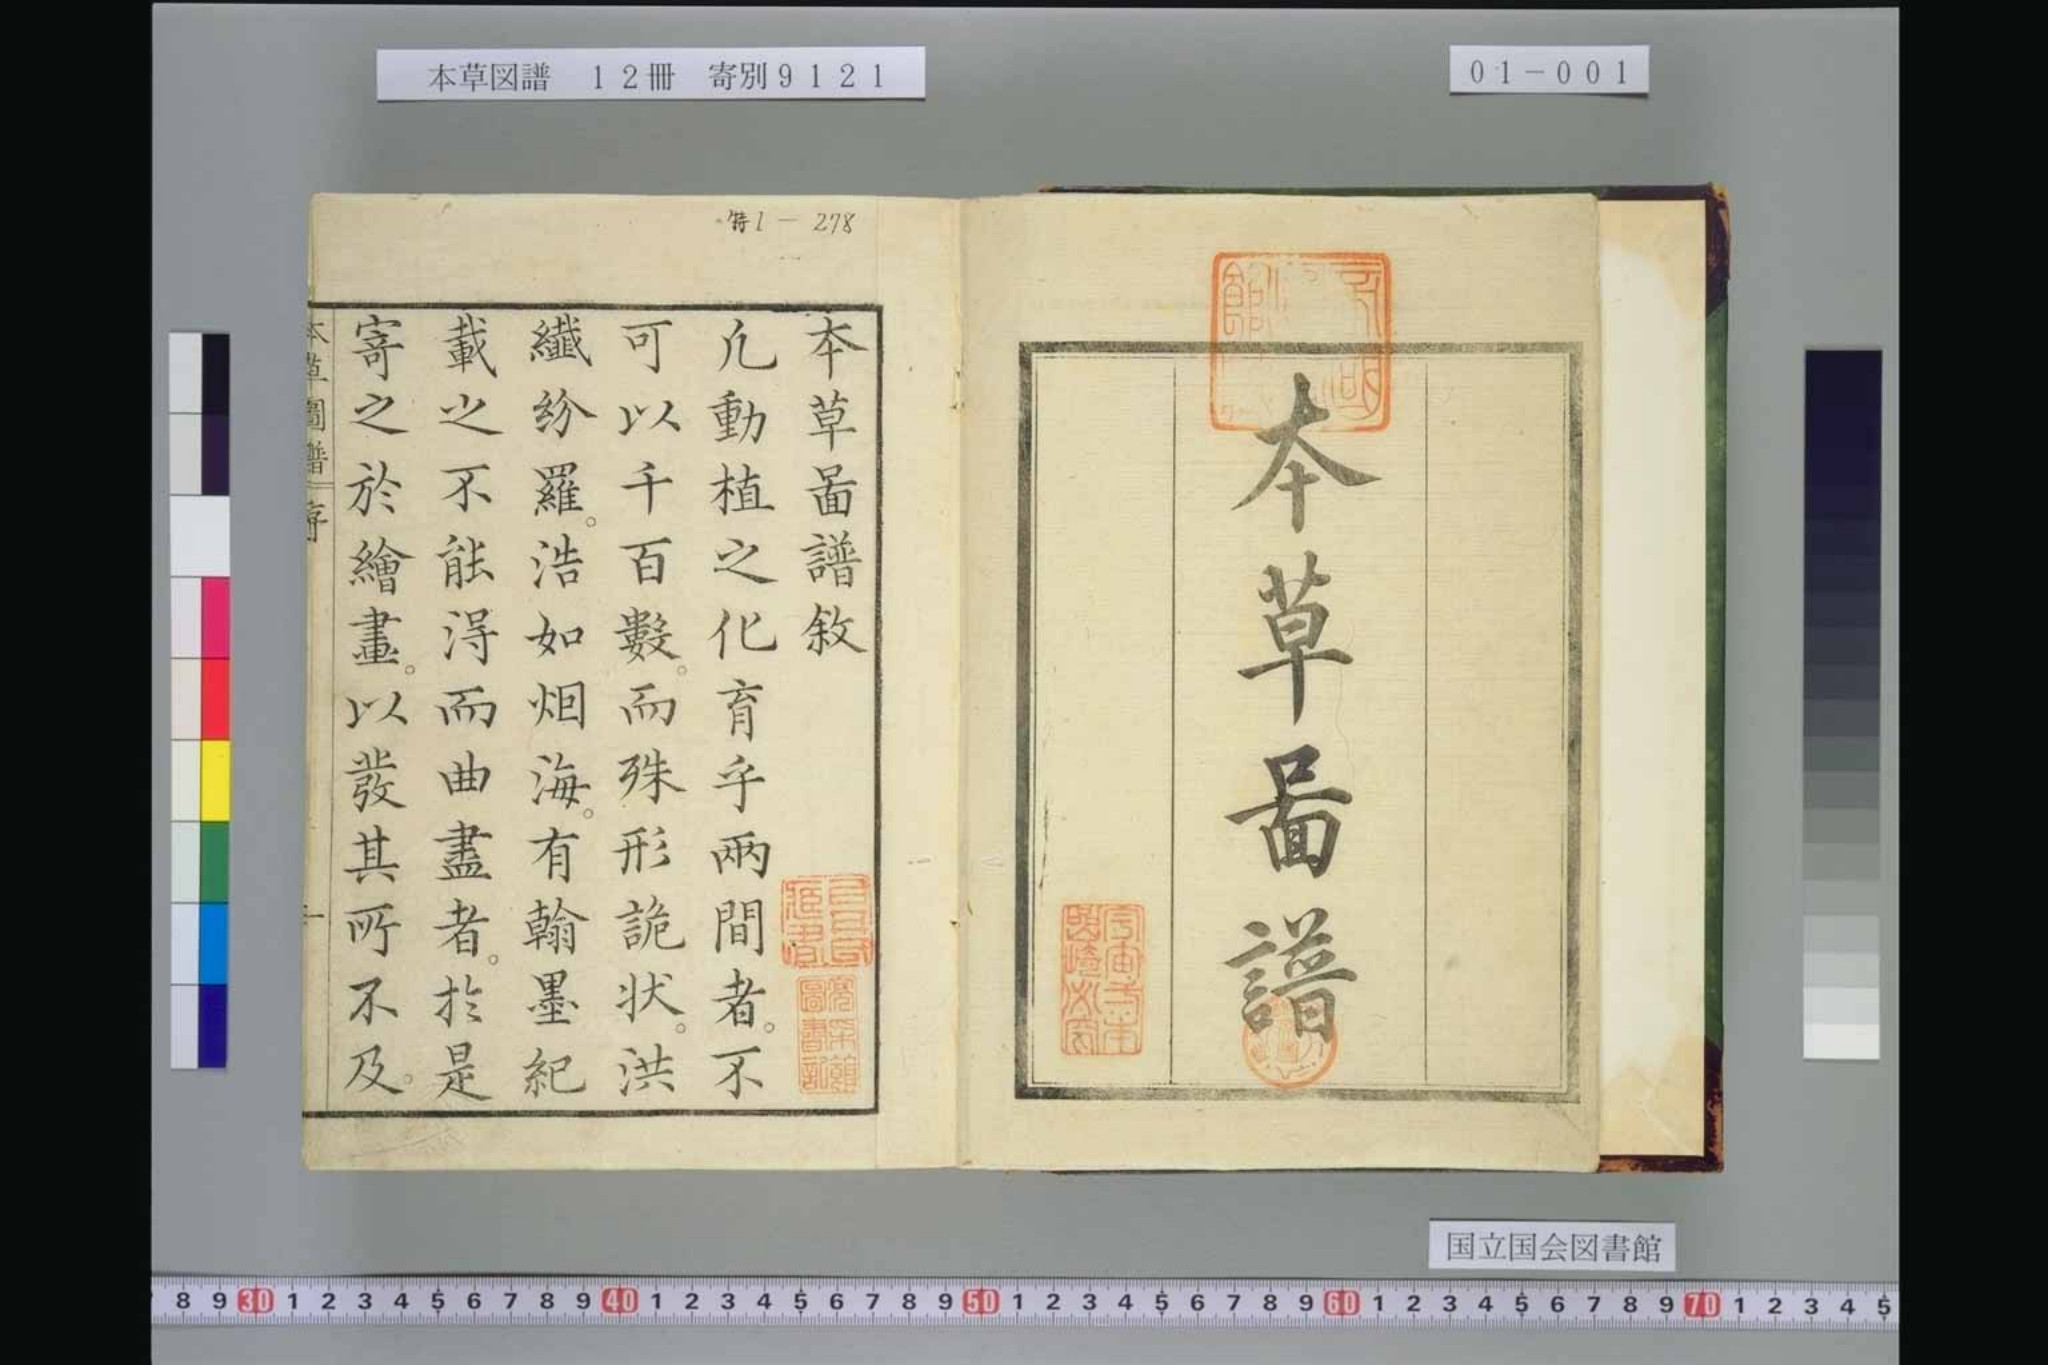 本草図譜　12冊　寄別9121
01-001
本草啚譜
特1-278
本草啚譜敘
凢動植之化育乎兩間者。不
可以千百數。而殊形詭状。洪
纖紛羅。浩如烟海。有翰墨紀
載之不能得而曲盡者。於是
寄之於繪畫。以發其所不及。
本草圖譜 序
一
国立国会図書館
8 9 30 1 2 3 4 5 6 7 8 9 40 1 2 3 4 5 6 7 8 9 50 1 2 3 4 5 6 7 8 9 60 1 2 3 4 5 6 7 8 9 70 1 2 3 4 5